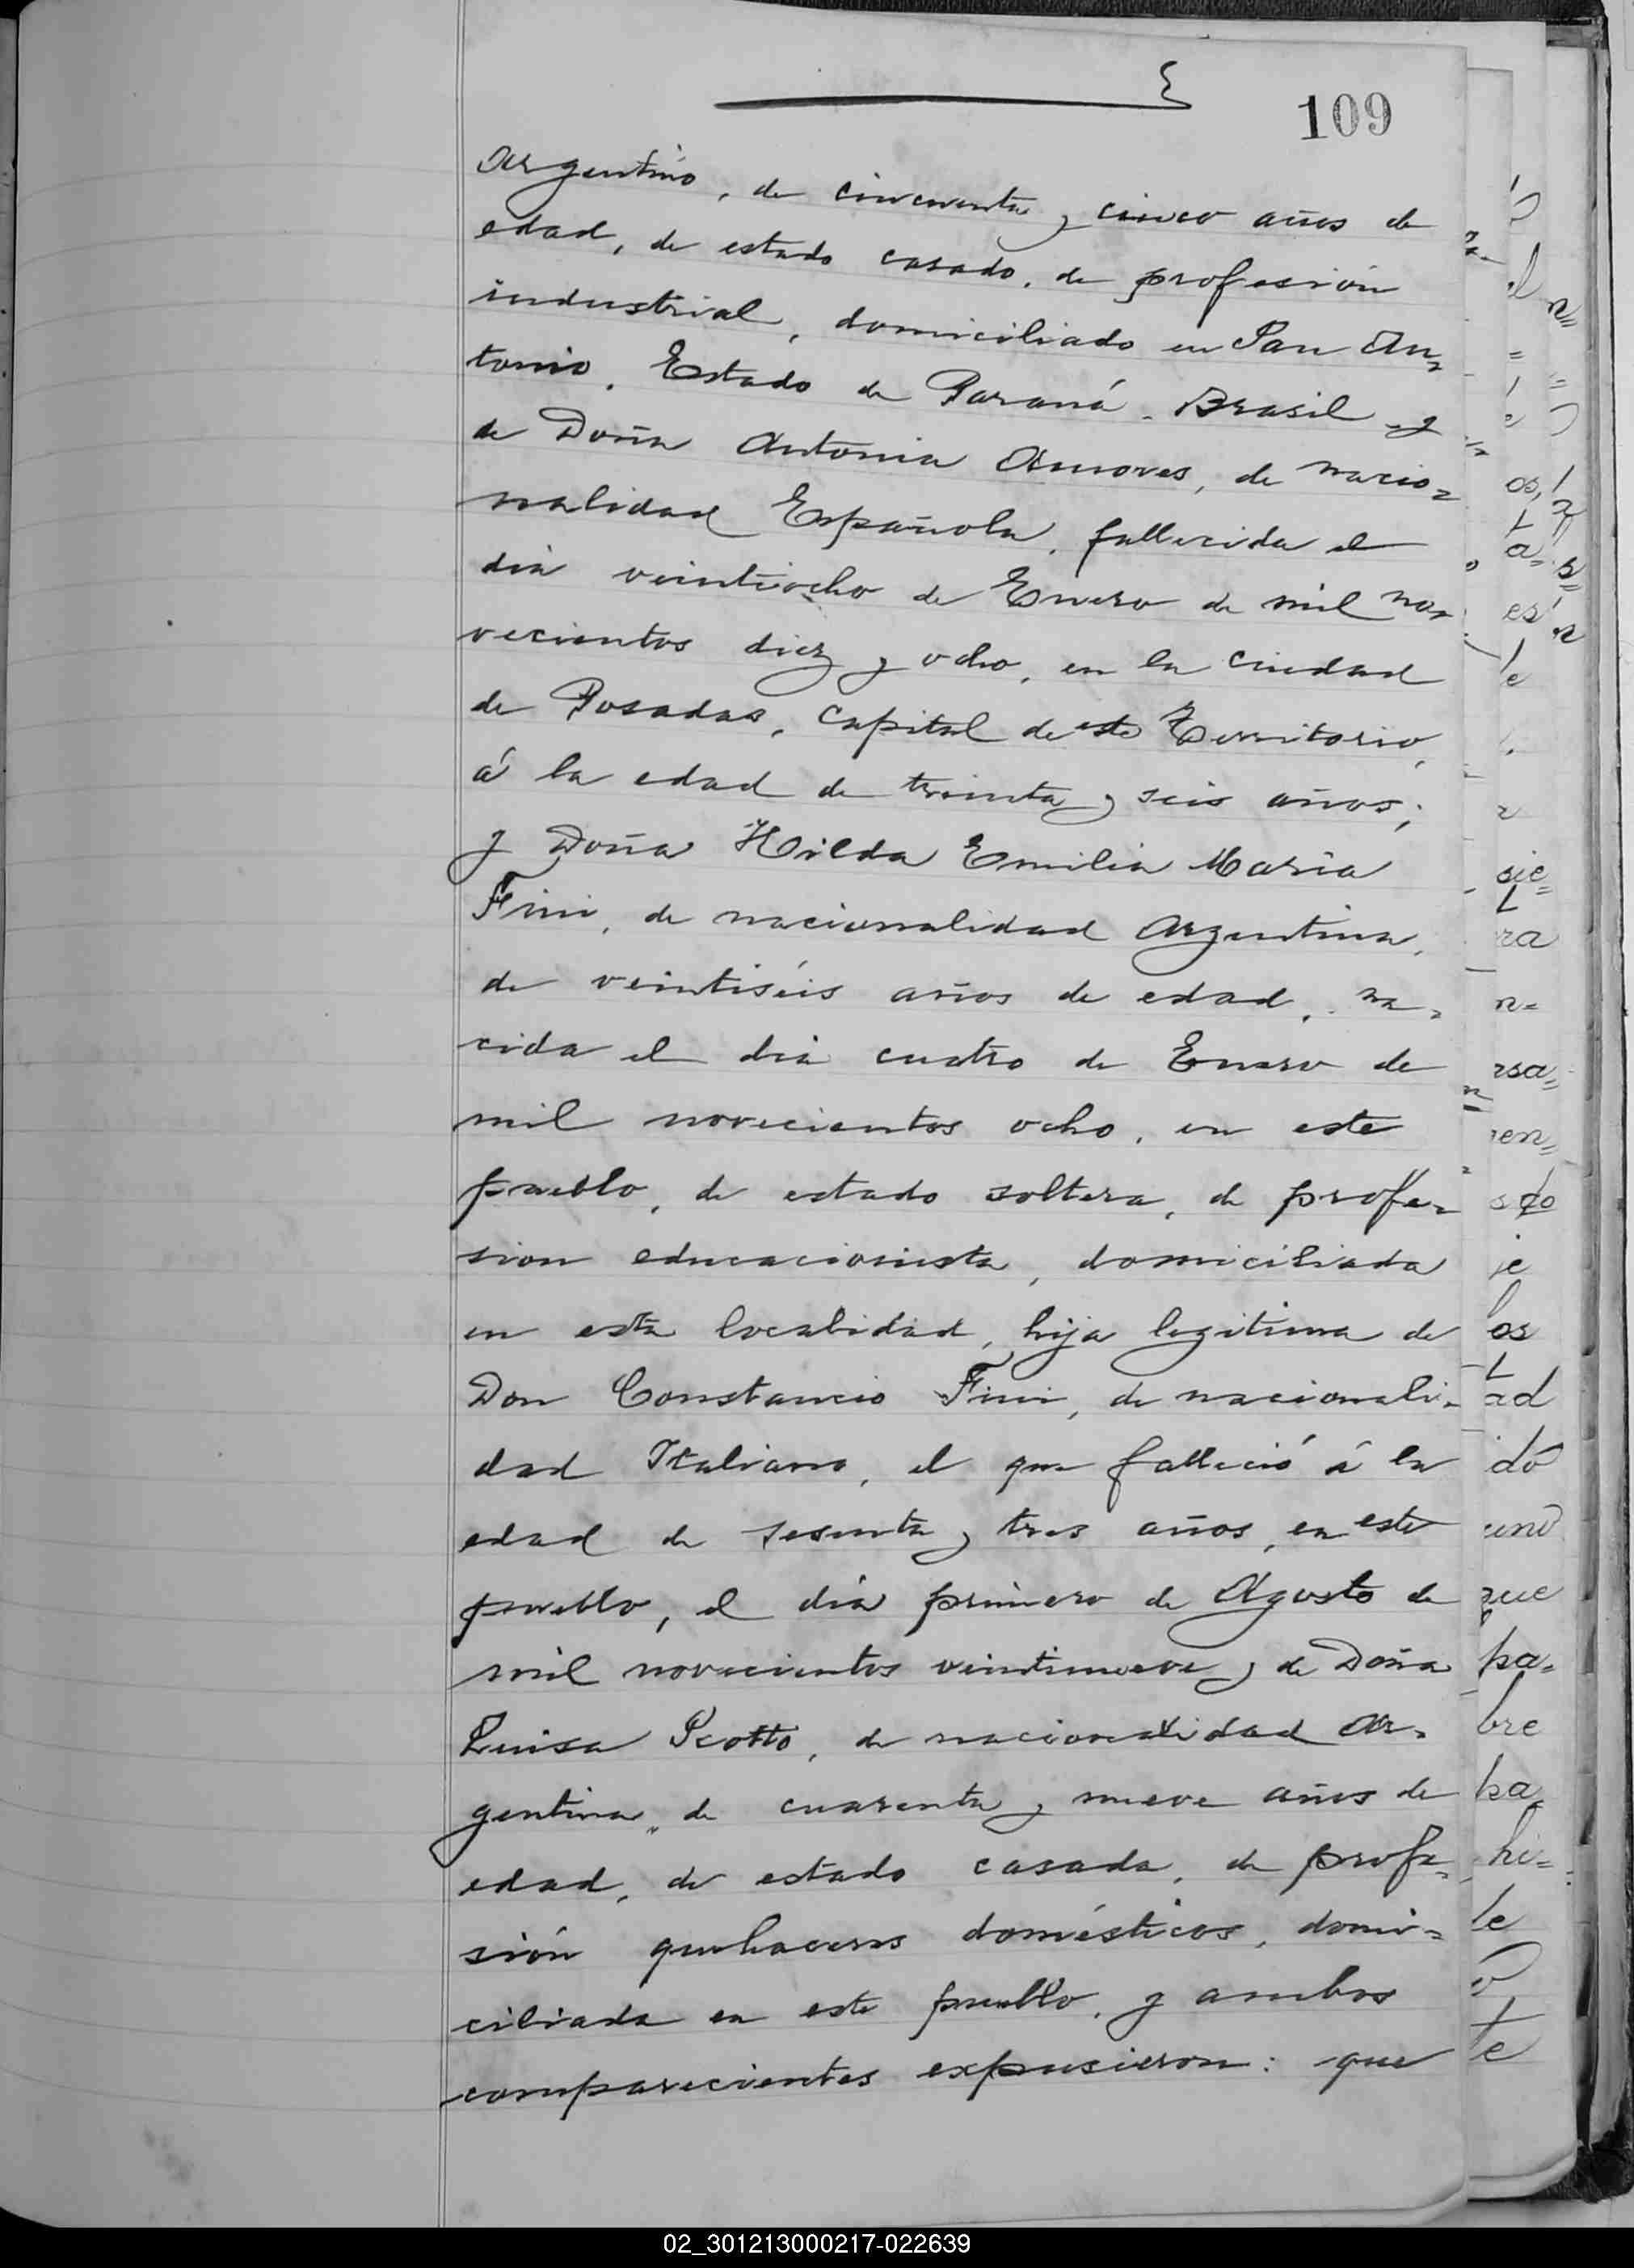 109
Argentino, de cincuenta y cinco años de
edad, de estado casado, de profesión
industrial, domiciliado en San An=
tonio, Estado de Paraná, Brasil y
de Doña Antonia Amores, de nacio=
nalidad Española, fallecida el
día veintiocho de Enero de mil no=
vecientos diez y ocho, en la ciudad
de Posadas, Capital de este Territorio,
á la edad de treinta y seis años;
y Doña Hilda Emilia María
Fini, de nacionalidad Argentina,
de veintiséis años de edad, na=
cida el día cuatro de Enero de
mil novecientos ocho, en este
pueblo, de estado soltera, de profe=
sion educacionista, domiciliada
en esta localidad, hija legitima de
Don Constancio Fini, de nacionali=
dad Italiana, el que falleció á la
edad de sesenta y tres años, en este
pueblo, el día primero de Agosto de
mil novecientos veintinueve y de Doña
Luisa Scotto, de nacionalidad Ar=
gentina, de cuarenta y nueve años de
edad, de estado casada, de profe=
sión quehaceres domésticos, domi=
ciliada en este pueblo, y ambos
comparecientes expusieron: que
02_301213000217-022639